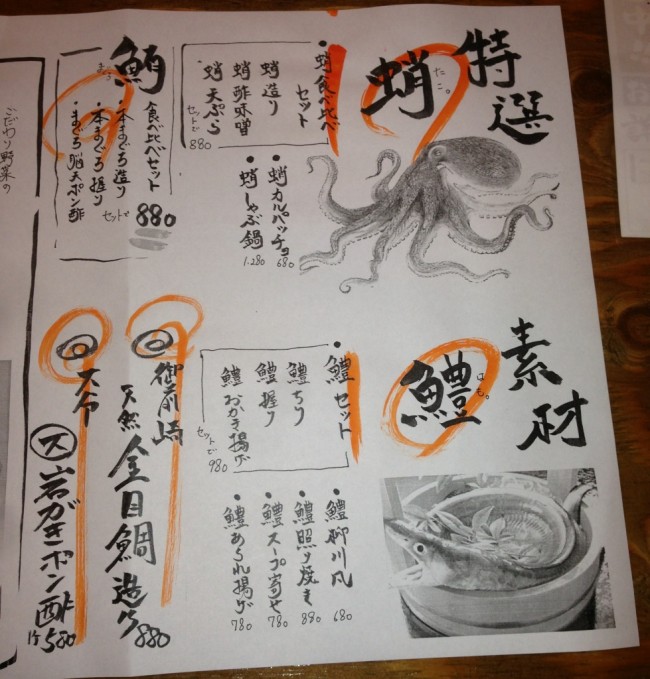 特選
素材
蛸
たこ。
・蛸食べ比べ
セット
蛸造り
蛸酢味噌
蛸天ぷら
セットで
880
・蛸カルパッチョ
680
・蛸しゃぶ鍋
1.280
鮪
まぐろ
食べ比べセット
・本まぐろ造り
・本まぐろ握り
・まぐろ脳天ポン酢
セットで
880
鱧
はも。
・鱧セット
鱧ちり
鱧握り
鱧おかき揚げ
セットで
980
・鱧柳川風
680
・鱧照り焼き
880
・鱧スープ寄せ
780
・鱧あられ揚げ
780
御前崎
天然金目鯛造り
880
大分
岩がきポン酢
1ケ580
こだわり野菜の